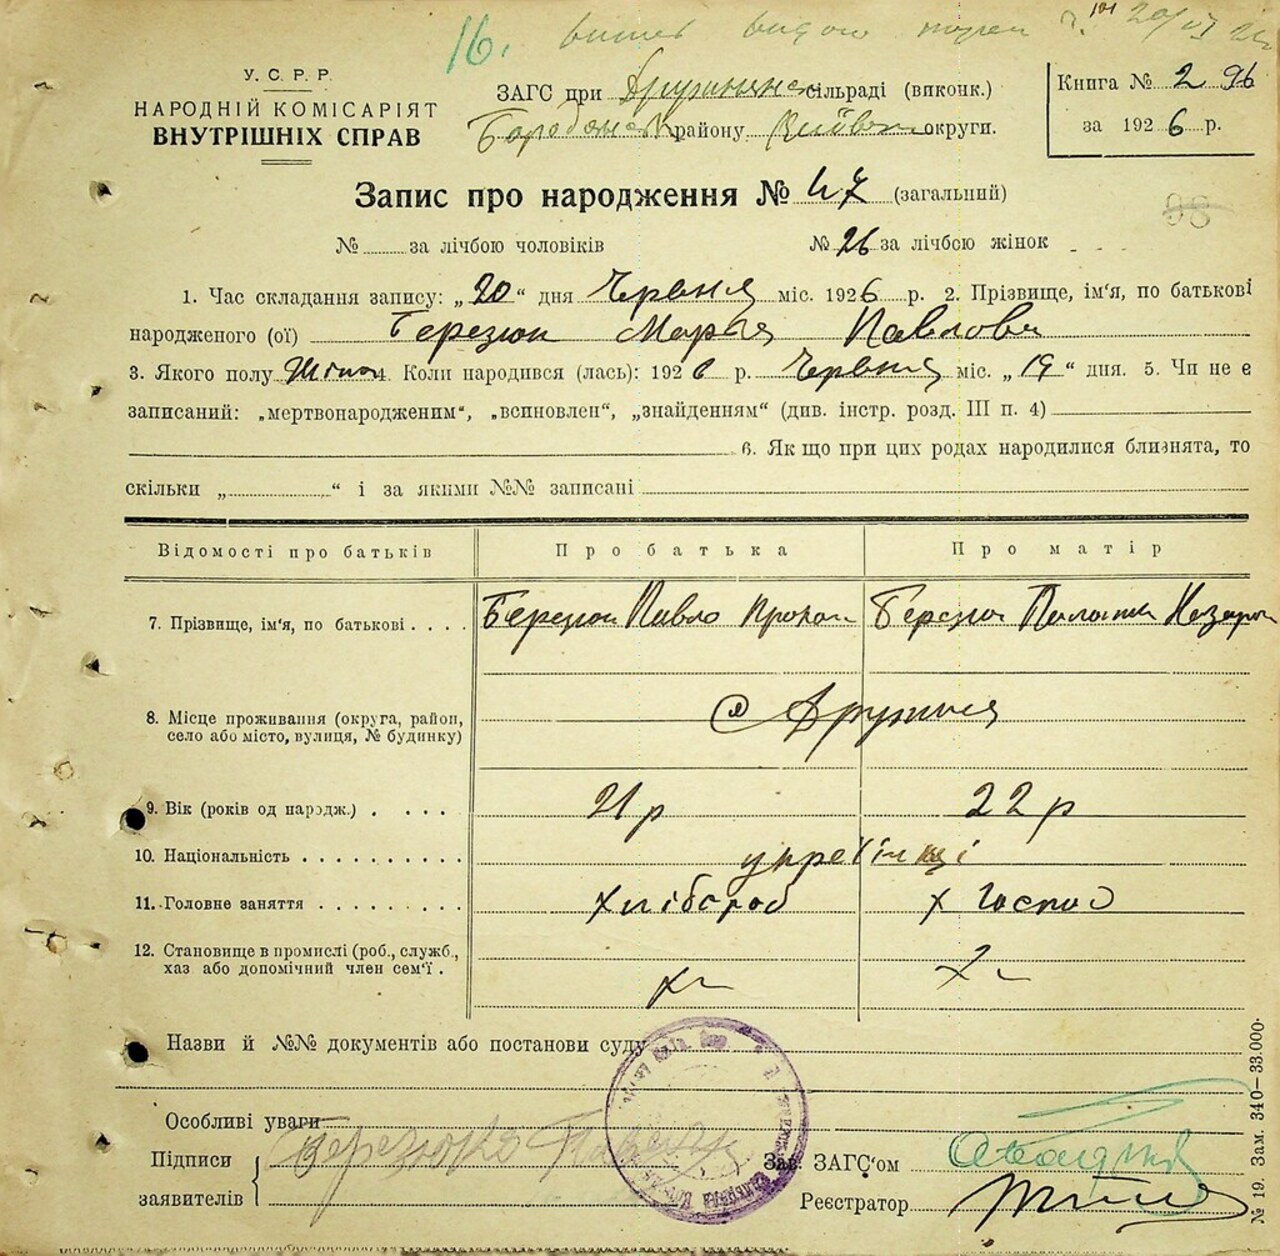 16. витяг видано 20/VI 26
У. С. Р. Р.
НАРОДНІЙ КОМІСАРІЯТ
ВНУТРІШНІХ СПРАВ
ЗАГС при Дружнянс сільраді (виконк.)
Бородянськ району Київськ округи.
Книга № 2 96
за 1926 р.
Запис про народження № 47 (загальний)
98
№ за лічбою чоловіків № 26 за лічбою жінок
1. Час складання запису: „20“ дня Червня міс. 1926 р. 2. Прізвище, ім'я, по батькові
народженого (ої) Березюк Марья Павлова
3. Якого полу Жіноч 4. Коли народився (лась): 1926 р. Червня міс. „19“ дня. 5. Чи не є
записаний: „мертвонародженим“, „всиновлен“, „знайденням“ (див. інстр. розд. III п. 4)
6. Як що при цих родах народилися близнята, то
скільки „ “ і за якими №№ записані
Відомості про батьків Про батька Про матір
7. Прізвище, ім'я, по батькові . . . . Березюк Павло Прокоп Березюк Палажка Назаров
8. Місце проживання (округа, район,
село або місто, вулиця, № будинку) с Дружня
9. Вік (років од народж.) . . . . 21 р 22 р
10. Національність . . . . . . . . . . українці
11. Головне заняття . . . . . . . . . хлібороб х господ
12. Становище в промислі (роб., служб.,
хаз або допомічний член сем'ї .
Назви й №№ документів або постанови суду
Особливі уваги
Підписи
заявителів
Березюк Павло
Зав. ЗАГС'ом
Реєстратор
№ 19. Зам. 340—33.000.